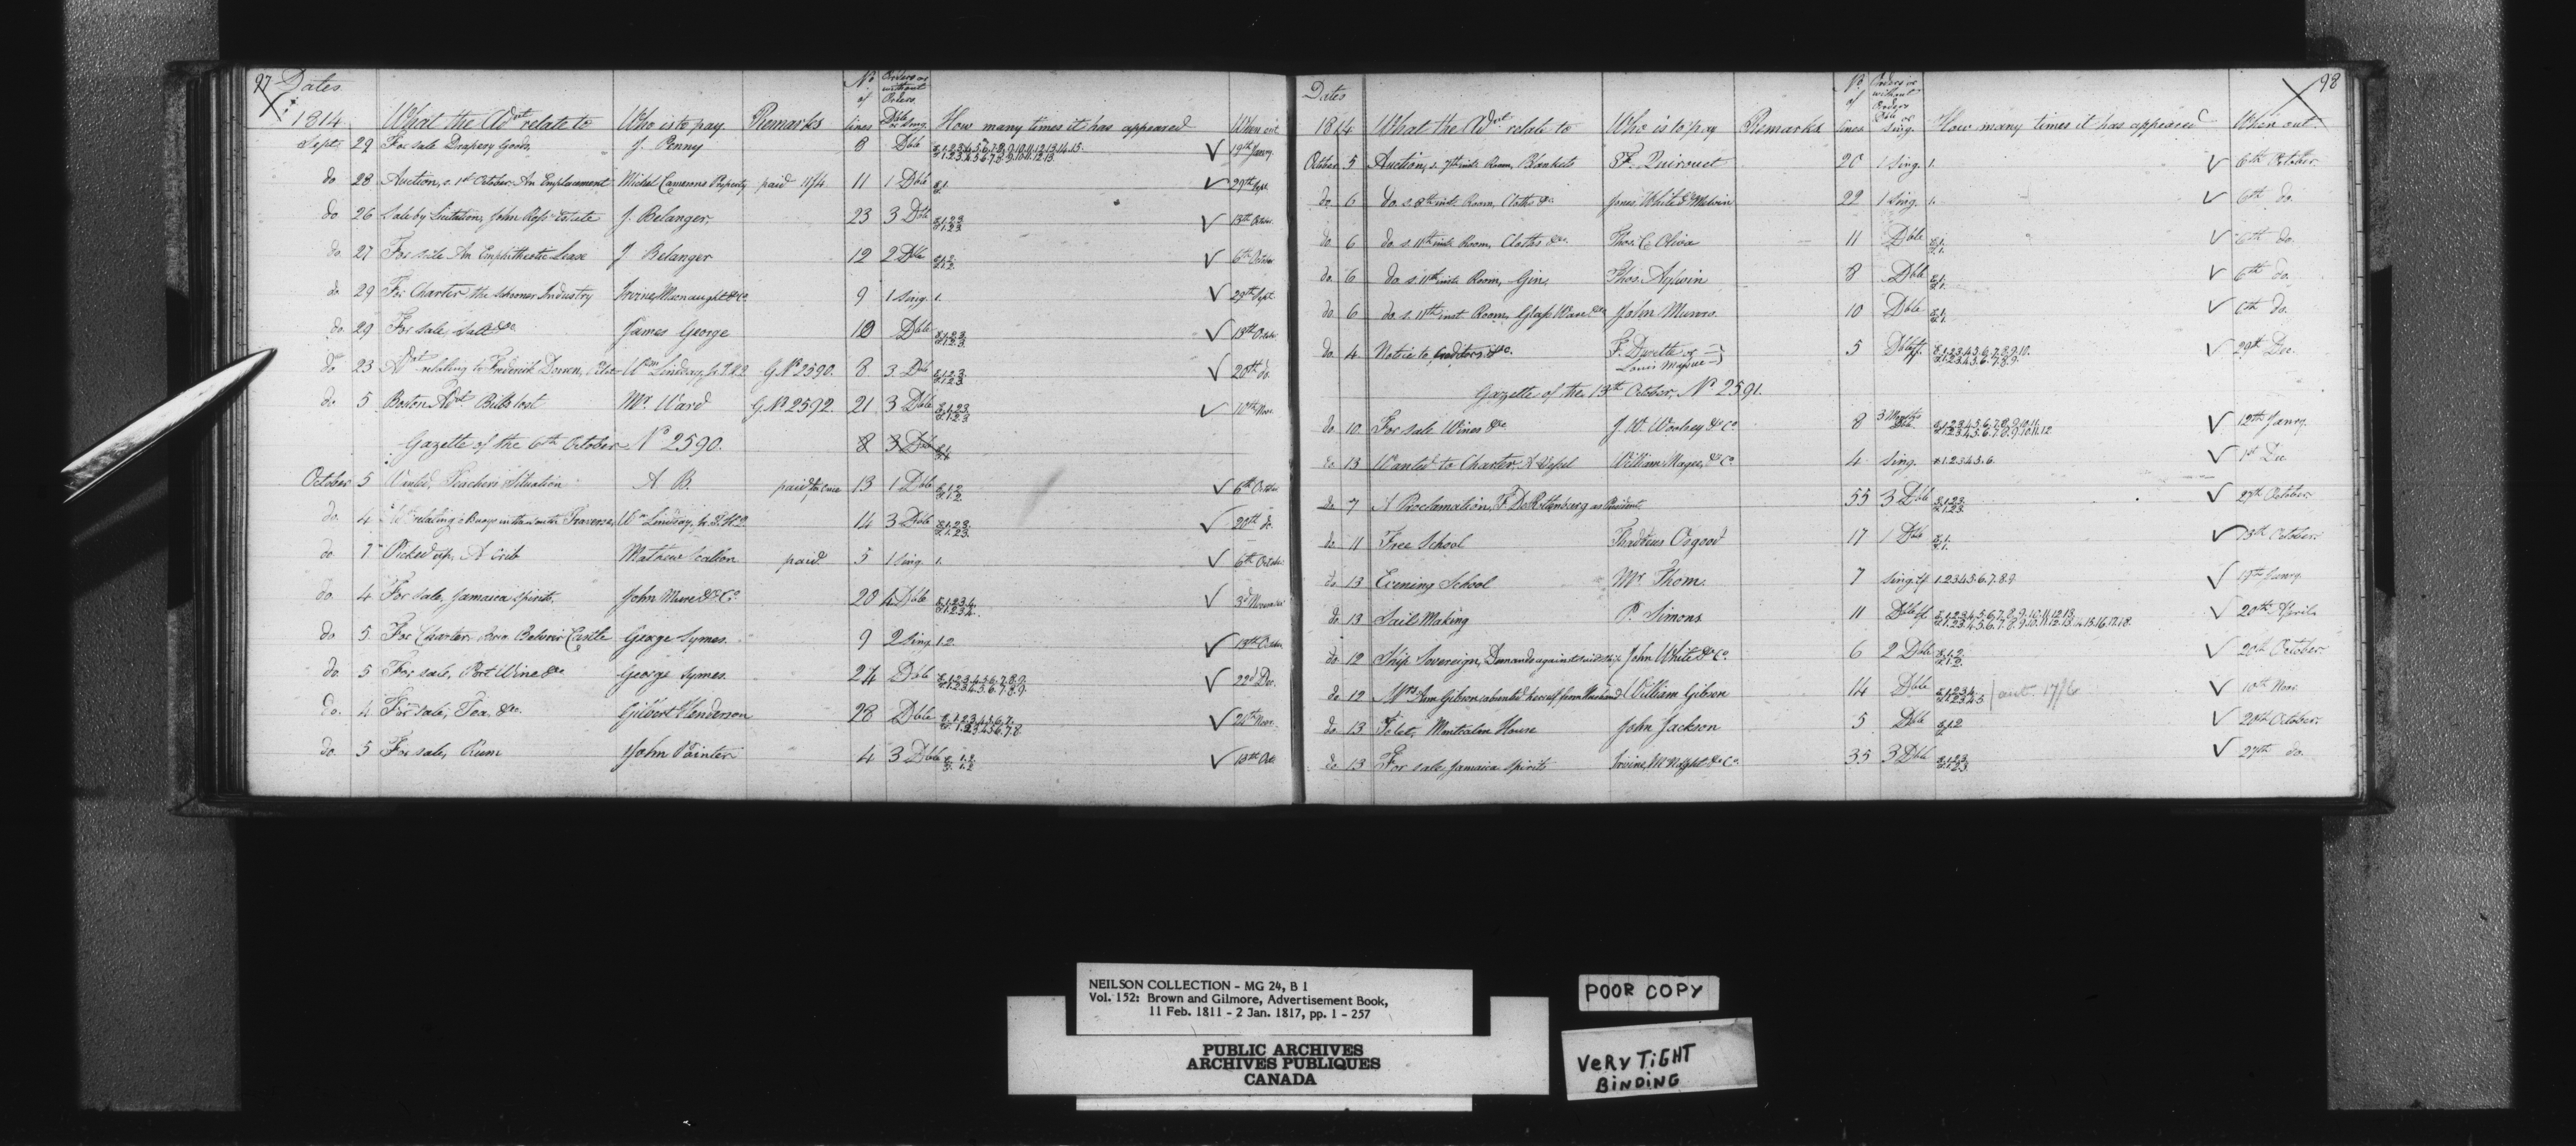 97 Dates
1814 What the Advt relate to Who is to pay Remarks No of lines Orders or without Orders Dble or Sing. How many times it has appeared When out
Sept. 29 For sale Drapery Goods, J. Penny 8 Dble 1.2.3.4.5.6.7.8.9.10.11.12.13.14.15. 19th Janry
do 28 Auction, s. 1st October An Emplacement Michel Property paid 11/4 11 1 Dble 1. 29th Sept.
do 26 Sale by Licitation, John Ross Estate J. Belanger, 23 3 Dble 1.2.3 13th Octobr.
do 27 For sale An Emphitheotic Lease J Belanger 12 2 Dble 1.2. 6th October
do 29 For Charter, the Schooner Industry Irvine, Mcnaught & Co. 9 1 Sing. 1. 29th Sept.
do 29 For sale, Salt &c James George 10 Dble 1.2.3 13th Octobr.
do 23 Advt relating to Frederick Wm Lindsay, G. No 2590. 8 3 Dble 1.2.3 20th do.
do 5 Boston Advt. Bills lost Mr Ward G. No 2592. 21 3 Dble 1.2.3 10th Nov.
Gazette of the 6th October No 2590. 8 3 Dble
October 5 Wanted, Teacher's Situation A B. paid 13 1 Dble 1.2 6th October
do. 4 relating Buoys in the north Traverse, Wm Lindsay, 14 3 Dble 1.2.3. 20th do.
do 7 Picked up, A Crib Mathew paid 5 1 Sing. 1. 6th October
do. 4 For sale, Jamaica Spirits, John Mure & Co. 20 4 Dble 1.2.3.4. 3d November
do 5 For Charter, Belvoir Castle George Symes. 9 2 Sing 1.2. 13th October
do. 5 For sale, Port Wine &c George Symes. 24 Dble 1.2.3.4.5.6.7.8.9. 22d Dec.
do. 4 For sale, Tea &c. Gilbert Henderson 28 Dble 1.2.3.4.5.6.7.8 24th Nov.
do 5 For sale, Rum John Painter 4 3 Dble 1.2. 13th Oct.
98
Dates
1814 What the Advt relate to Who is to pay Remarks No of lines Orders or without Orders Dble or Sing. How many times it has appeared When out
October 5 Auction, s. 7th inst. Room, Blankets F. Quirouet 20 1 Sing. 1. 6th October
do 6 do. s. 8th inst. Room, Cloths &c. Jones White & Melvin 22 1 Sing. 1. 6th do.
do 6 do. s. 11th inst. Room, Cloths &c. Thos. C. Oliva 11 Dble 1. 6th do.
do 6 do s. 11th inst. Room, Gin, Thos. Aylwin 8 Dble 1. 6th do.
do 6 do. s. 11th inst. Room, Glass Ware &c John Munro. 10 Dble 1. 6th do.
do 4 Notice to Creditors, &c. F. Durette or Louis 5 Dble 1.2.3.4.5.6.7.8.9.10. 29th Dec.
Gazette of the 13th October, No 2591.
do 10 For sale Wines &c J. W. Woolsey & Co. 8 3 Months Dble 1.2.3.4.5.6.7.8.9.10.11.12 12th Janry.
do 13 Wanted to Charter, A Vessel William Magee, & Co. 4 Sing. 1.2.3.4.5.6. 1st Dec
do 7 A Proclamation, F. De Rottenburg as President 55 3 Dble 1.2.3 27th October
do 11 Free School Thaddeus Osgood 17 1 Dble 1. 13th October.
do 13 Evening School Mr Thom. 7 Sing. tf 1.2.3.4.5.6.7.8.9. 19th Janry.
do 13 Sail Making P. Simons 11 Dble tf 1.2.3.4.5.6.7.8.9.10.11.12.13.14.15.16.17.18. 20th April
do 12 Ship Sovereign, Demands against said ship John White & Co. 6 2 Dble 1.2. 20th October
do 12 Mrs Ann Gibson absented herself from Husband William Gibson 14 Dble 1.2.3.4.5 17/6 10th Nov.
do 13 To let, Montcalm House John Jackson 5 Dble 1.2 20th October.
do 13 For sale Jamaica Spirits Irvine, McNaght & Co. 35 3 Dble 1.2.3. 27th do.
NEILSON COLLECTION - MG 24, B 1
Vol. 152: Brown and Gilmore, Advertisement Book,
11 Feb. 1811 - 2 Jan. 1817, pp. 1 - 257
PUBLIC ARCHIVES
ARCHIVES PUBLIQUES
CANADA
POOR COPY
VERY TIGHT
BINDING